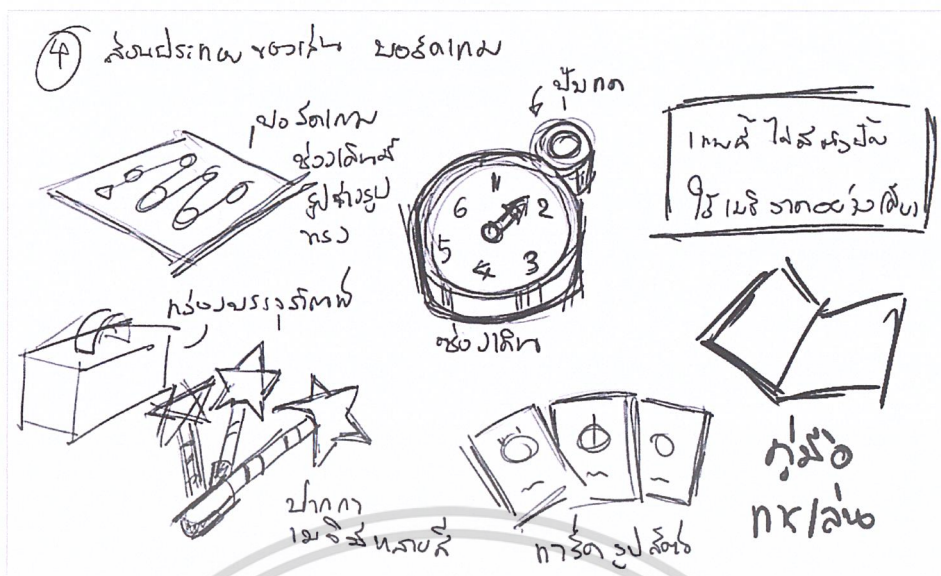 ④ ส่วนประกอบ ของเล่น บอร์ดเกม
ปุ่มกด
บอร์ดเกม
ช่องเดินมี
รูปร่างรูป
ทรง
1
2
3
4
5
6
ช่องเดิน
เกมนี้ ไม่มี
ใช้
อย่างเดียว
กล่องบรรจุภัณฑ์
ปากกา
เมจิกหลายสี
การ์ด รูปสัตว์
คู่มือ
การเล่น